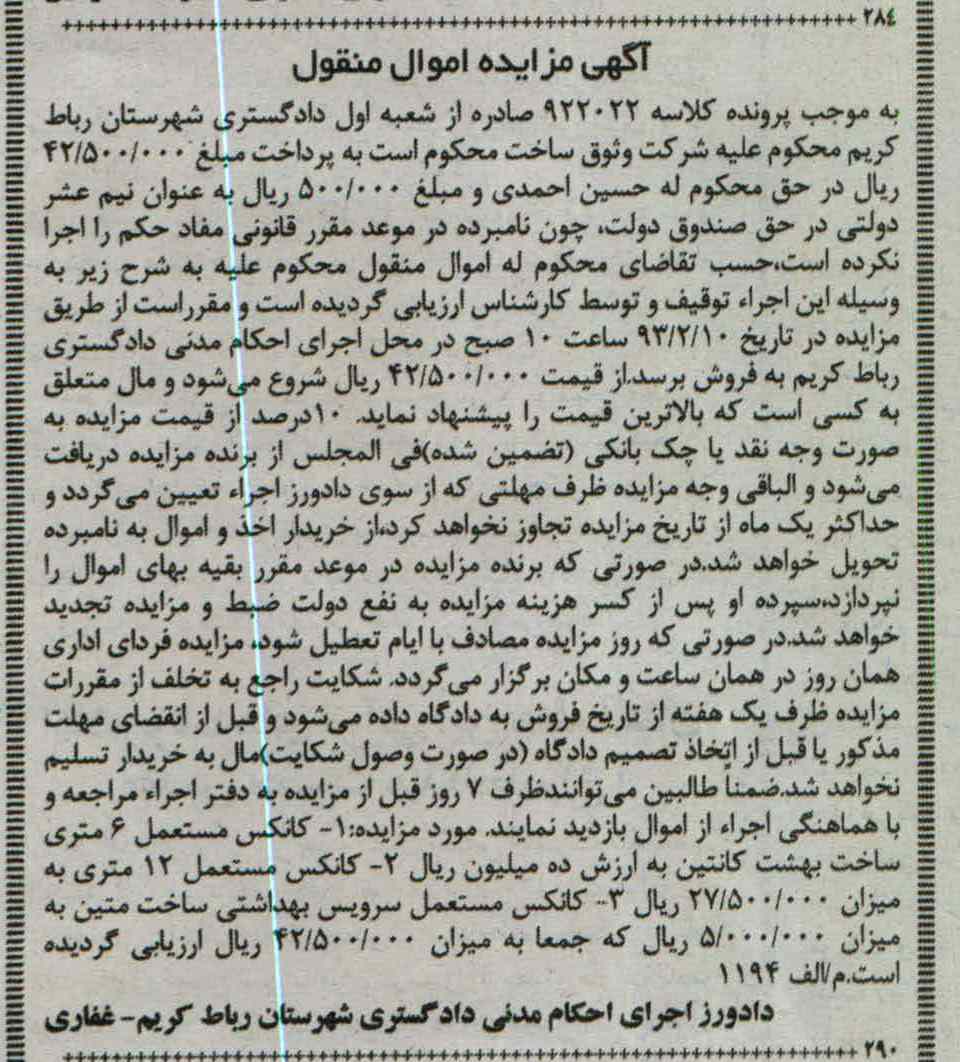 ۲۸۴
آگهی مزایده اموال منقول
به موجب پرونده کلاسه ۹۲۲۰۲۲ صادره از شعبه اول دادگستری شهرستان رباط
کریم محکوم علیه شرکت وثوق ساخت محکوم است به پرداخت مبلغ ۴۲/۵۰۰/۰۰۰
ریال در حق محکوم له حسین احمدی و مبلغ ۵۰۰/۰۰۰ ریال به عنوان نیم عشر
دولتی در حق صندوق دولت، چون نامبرده در موعد مقرر قانونی مفاد حکم را اجرا
نکرده است،حسب تقاضای محکوم له اموال منقول محکوم علیه به شرح زیر به
وسیله این اجراء توقیف و توسط کارشناس ارزیابی گردیده است و مقرراست از طریق
مزایده در تاریخ ۹۳/۲/۱۰ ساعت ۱۰ صبح در محل اجرای احکام مدنی دادگستری
رباط کریم به فروش برسد.از قیمت ۴۲/۵۰۰/۰۰۰ ریال شروع می‌شود و مال متعلق
به کسی است که بالاترین قیمت را پیشنهاد نماید. ۱۰درصد از قیمت مزایده به
صورت وجه نقد یا چک بانکی (تضمین شده)فی المجلس از برنده مزایده دریافت
می‌شود و الباقی وجه مزایده ظرف مهلتی که از سوی دادورز اجراء تعیین می‌گردد و
حداکثر یک ماه از تاریخ مزایده تجاوز نخواهد کرد،از خریدار اخذ و اموال به نامبرده
تحویل خواهد شد.در صورتی که برنده مزایده در موعد مقرر بقیه بهای اموال را
نپردازد،سپرده او پس از کسر هزینه مزایده به نفع دولت ضبط و مزایده تجدید
خواهد شد.در صورتی که روز مزایده مصادف با ایام تعطیل شود، مزایده فردای اداری
همان روز در همان ساعت و مکان برگزار می‌گردد. شکایت راجع به تخلف از مقررات
مزایده ظرف یک هفته از تاریخ فروش به دادگاه داده می‌شود و قبل از انقضای مهلت
مذکور یا قبل از اتخاذ تصمیم دادگاه (در صورت وصول شکایت)مال به خریدار تسلیم
نخواهد شد.ضمنا طالبین می‌توانندظرف ۷ روز قبل از مزایده به دفتر اجراء مراجعه و
با هماهنگی اجراء از اموال بازدید نمایند. مورد مزایده:۱- کانکس مستعمل ۶ متری
ساخت بهشت کانتین به ارزش ده میلیون ریال ۲- کانکس مستعمل ۱۲ متری به
میزان ۲۷/۵۰۰/۰۰۰ ریال ۳- کانکس مستعمل سرویس بهداشتی ساخت متین به
میزان ۵/۰۰۰/۰۰۰ ریال که جمعا به میزان ۴۲/۵۰۰/۰۰۰ ریال ارزیابی گردیده
است.م/الف ۱۱۹۴
دادورز اجرای احکام مدنی دادگستری شهرستان رباط کریم- غفاری
۲۹۰